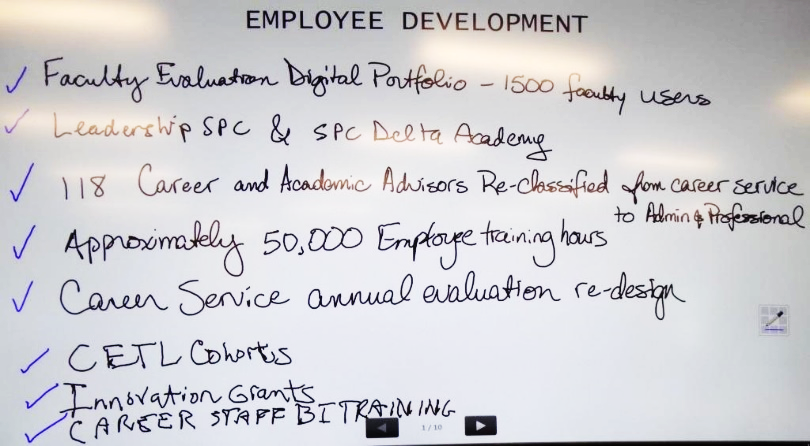 EMPLOYEE DEVELOPMENT
✓ Faculty Evaluation Digital Portfolio – 1500 faculty users
✓ Leadership SPC & SPC Delta Academy
✓ 118 Career and Academic Advisors Re-classified from career service
to Admin & Professional
✓ Approximately 50,000 Employee training hours
✓ Career Service annual evaluation re-design
✓ CETL Cohorts
✓ Innovation Grants
✓ CAREER STAFF BI TRAINING
1 / 10